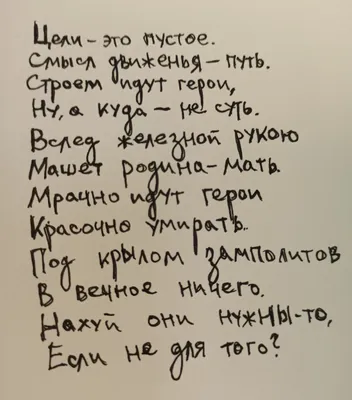 Цели – это пустое.
Смысл движенья – путь.
Строем идут герои,
Ну, а куда – не суть.
Вслед железной рукою
Машет родина-мать.
Мрачно идут герои
Красочно умирать.
Под крылом замполитов
В вечное ничего.
Нахуй они нужны-то,
Если не для того?